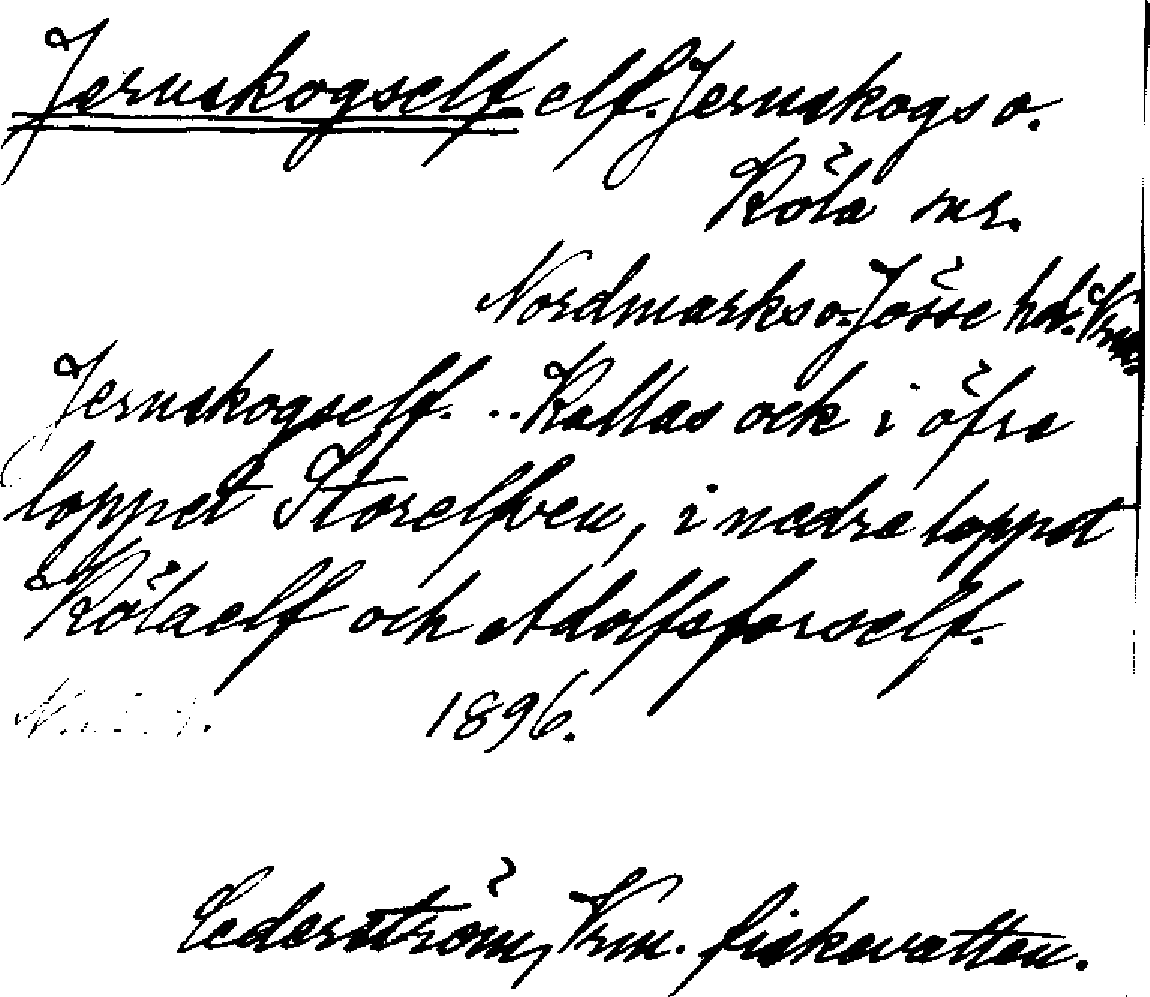 Jernskogself elf. Jernskogs o.
Köla snr.
Nordmarks o. Jösse hd. Vrm.
Jernskogself. .. Kallas ock i öfre
loppet Storelfven, i nedre loppet
Köla elf och Adolfsforself.
1896.
Cederström, Vrm. fiskevatten.